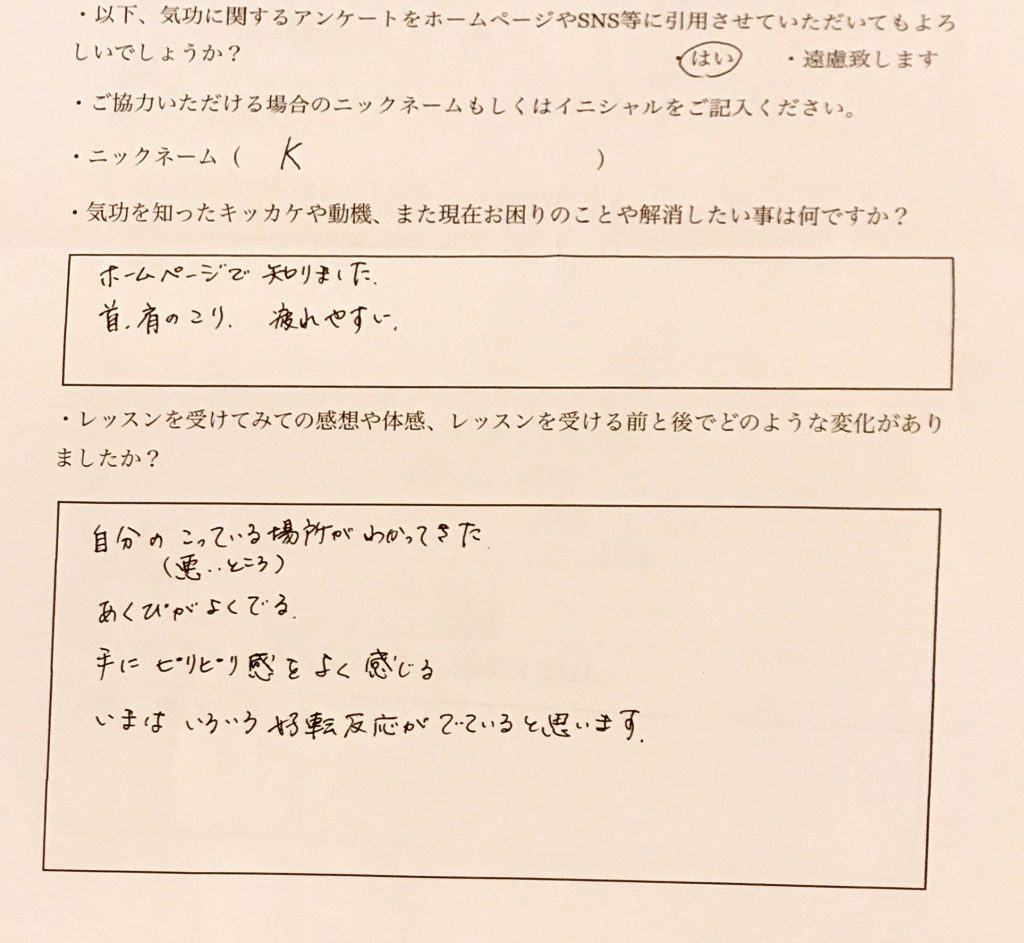 ・以下、気功に関するアンケートをホームページやSNS等に引用させていただいてもよろ
しいでしょうか？ ・はい ・遠慮致します
・ご協力いただける場合のニックネームもしくはイニシャルをご記入ください。
・ニックネーム（ K ）
・気功を知ったキッカケや動機、また現在お困りのことや解消したい事は何ですか？
ホームページで知りました.
首.肩のこり. 疲れやすい.
・レッスンを受けてみての感想や体感、レッスンを受ける前と後でどのような変化があり
ましたか？
自分のこっている場所がわかってきた.
（悪いところ）
あくびがよくでる.
手にピリピリ感をよく感じる
いまはいろいろ好転反応がでていると思います.